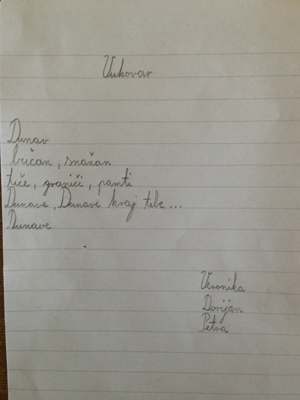 Vukovar
Dunav
bučan, snažan
teče, graniči, pamti
Dunave, Dunave kraj tebe...
Dunave
Veronika
Dorijan
Petra